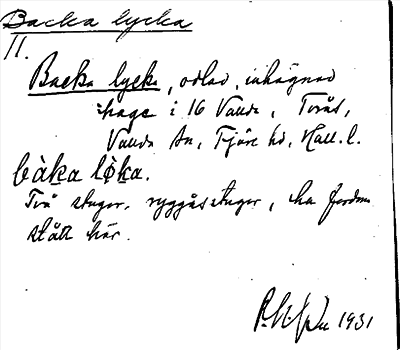 Backa lycka
II.
Backa lycka, odlad, inhägnad
hage i 16 Vallda, Tvråd,
Vallda sn, Fjäre hd, Hall. l.
bàka lỏka.
Två stugor, ryggåsstugor, ha fordom
stått här.
1931